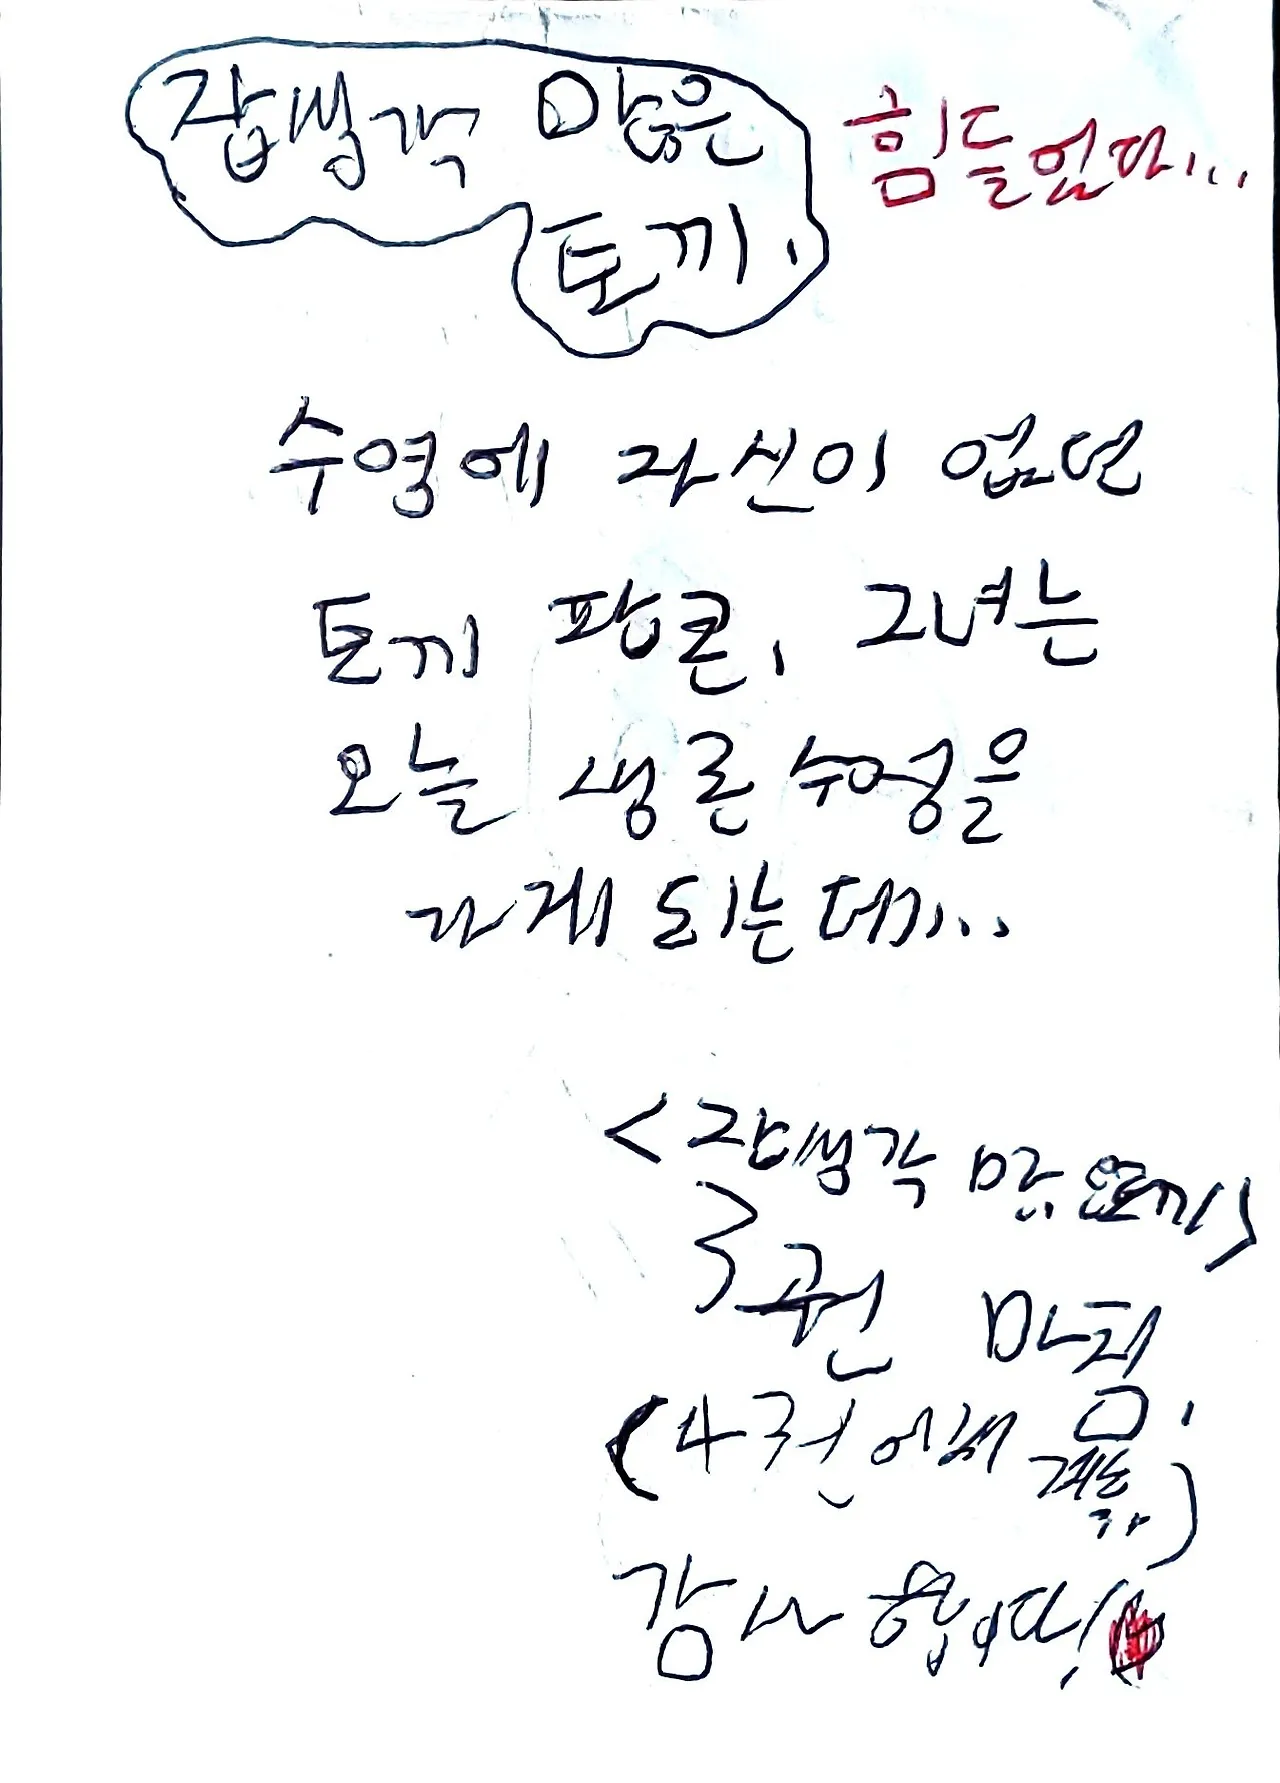 잡생각 많은
토끼.
힘들었다...
수영에 자신이 없던
토끼 팡콘, 그녀는
오늘 생존수영을
가게 되는데...
<잡생각 많은토끼>
3권 마침
(4권에서 계속)
감사합니다!